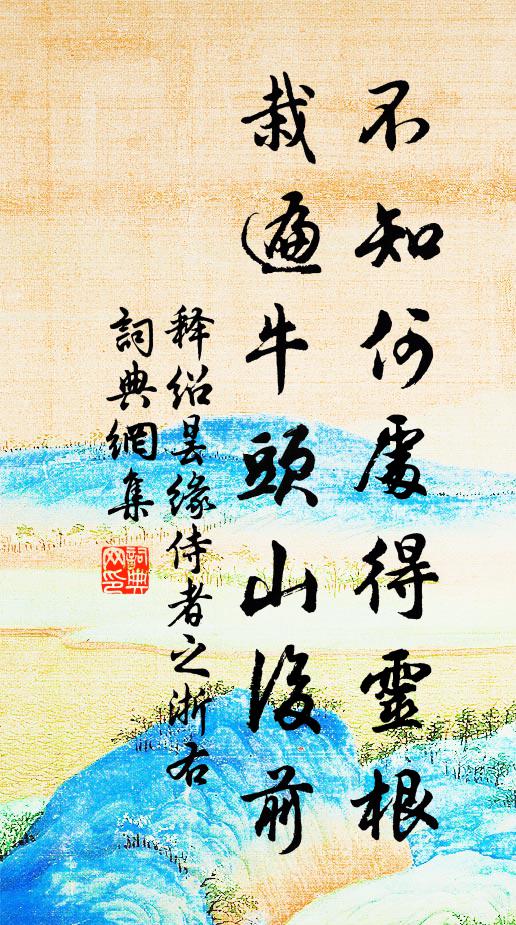 不知何處得靈根
栽遍牛頭山後前
释绍昙缘侍者之浙右
詞典網集
詞典
网印